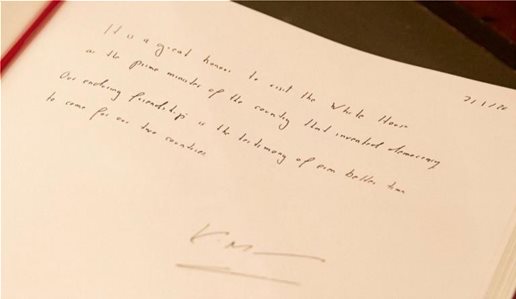 It is a great honor to visit the White House
as the prime minister of the country that invented democracy
Our enduring friendship is the testimony of even better
to come for our two countries
K.M